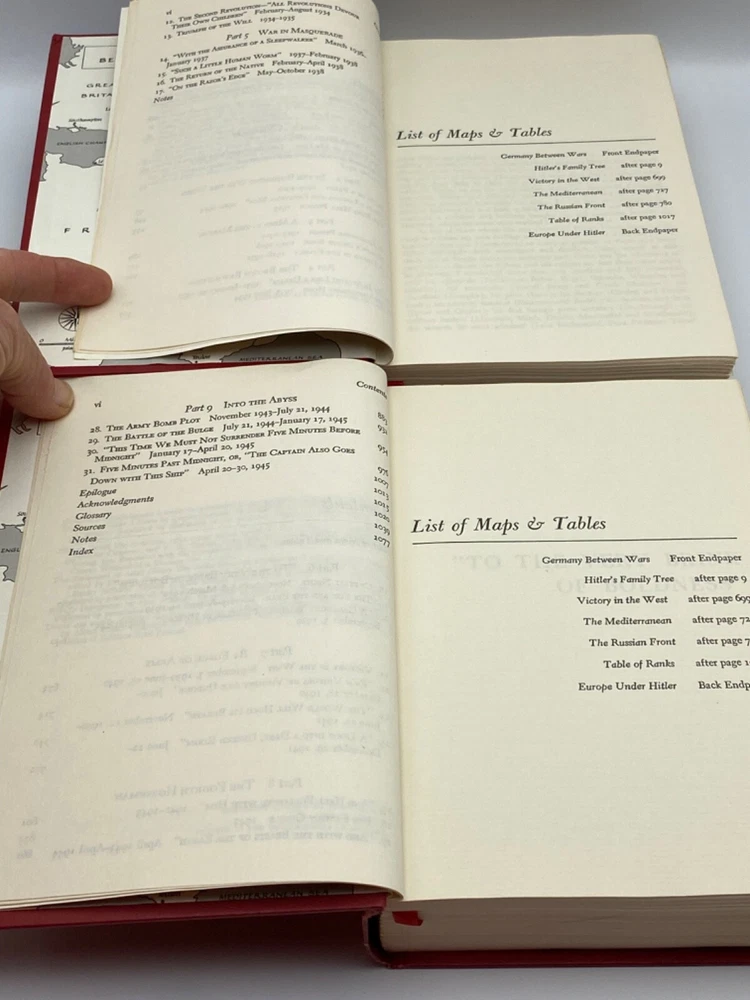 vi
12. THE SECOND REVOLUTION—"ALL REVOLUTIONS DEVOUR
THEIR OWN CHILDREN" February–August 1934
13. TRIUMPH OF THE WILL 1934–1935
Part 5 WAR IN MASQUERADE
14. "WITH THE ASSURANCE OF A SLEEPWALKER" March 1936–
January 1937
15. "SUCH A LITTLE HUMAN WORM" 1937–February 1938
16. THE RETURN OF THE NATIVE February–April 1938
17. "ON THE RAZOR'S EDGE" May–October 1938
Notes
List of Maps & Tables
Germany Between Wars Front Endpaper
Hitler's Family Tree after page 9
Victory in the West after page 699
The Mediterranean after page 727
The Russian Front after page 780
Table of Ranks after page 1017
Europe Under Hitler Back Endpaper
ENGLISH CHAN
MEDITERRANEAN SEA
vi
Contents
Part 9 INTO THE ABYSS
28. THE ARMY BOMB PLOT November 1943–July 21, 1944 883
29. THE BATTLE OF THE BULGE July 21, 1944–January 17, 1945 934
30. "THIS TIME WE MUST NOT SURRENDER FIVE MINUTES BEFORE
MIDNIGHT" January 17–April 20, 1945 954
31. FIVE MINUTES PAST MIDNIGHT, OR, "THE CAPTAIN ALSO GOES
DOWN WITH THIS SHIP" April 20–30, 1945 975
Epilogue 1007
Acknowledgments 1013
Glossary 1015
Sources 1020
Notes 1039
Index 1077
List of Maps & Tables
Germany Between Wars Front Endpaper
Hitler's Family Tree after page 9
Victory in the West after page 699
The Mediterranean after page 72
The Russian Front after page 7
Table of Ranks after page 1
Europe Under Hitler Back Endp
ENGL
MEDITERRANEAN SEA